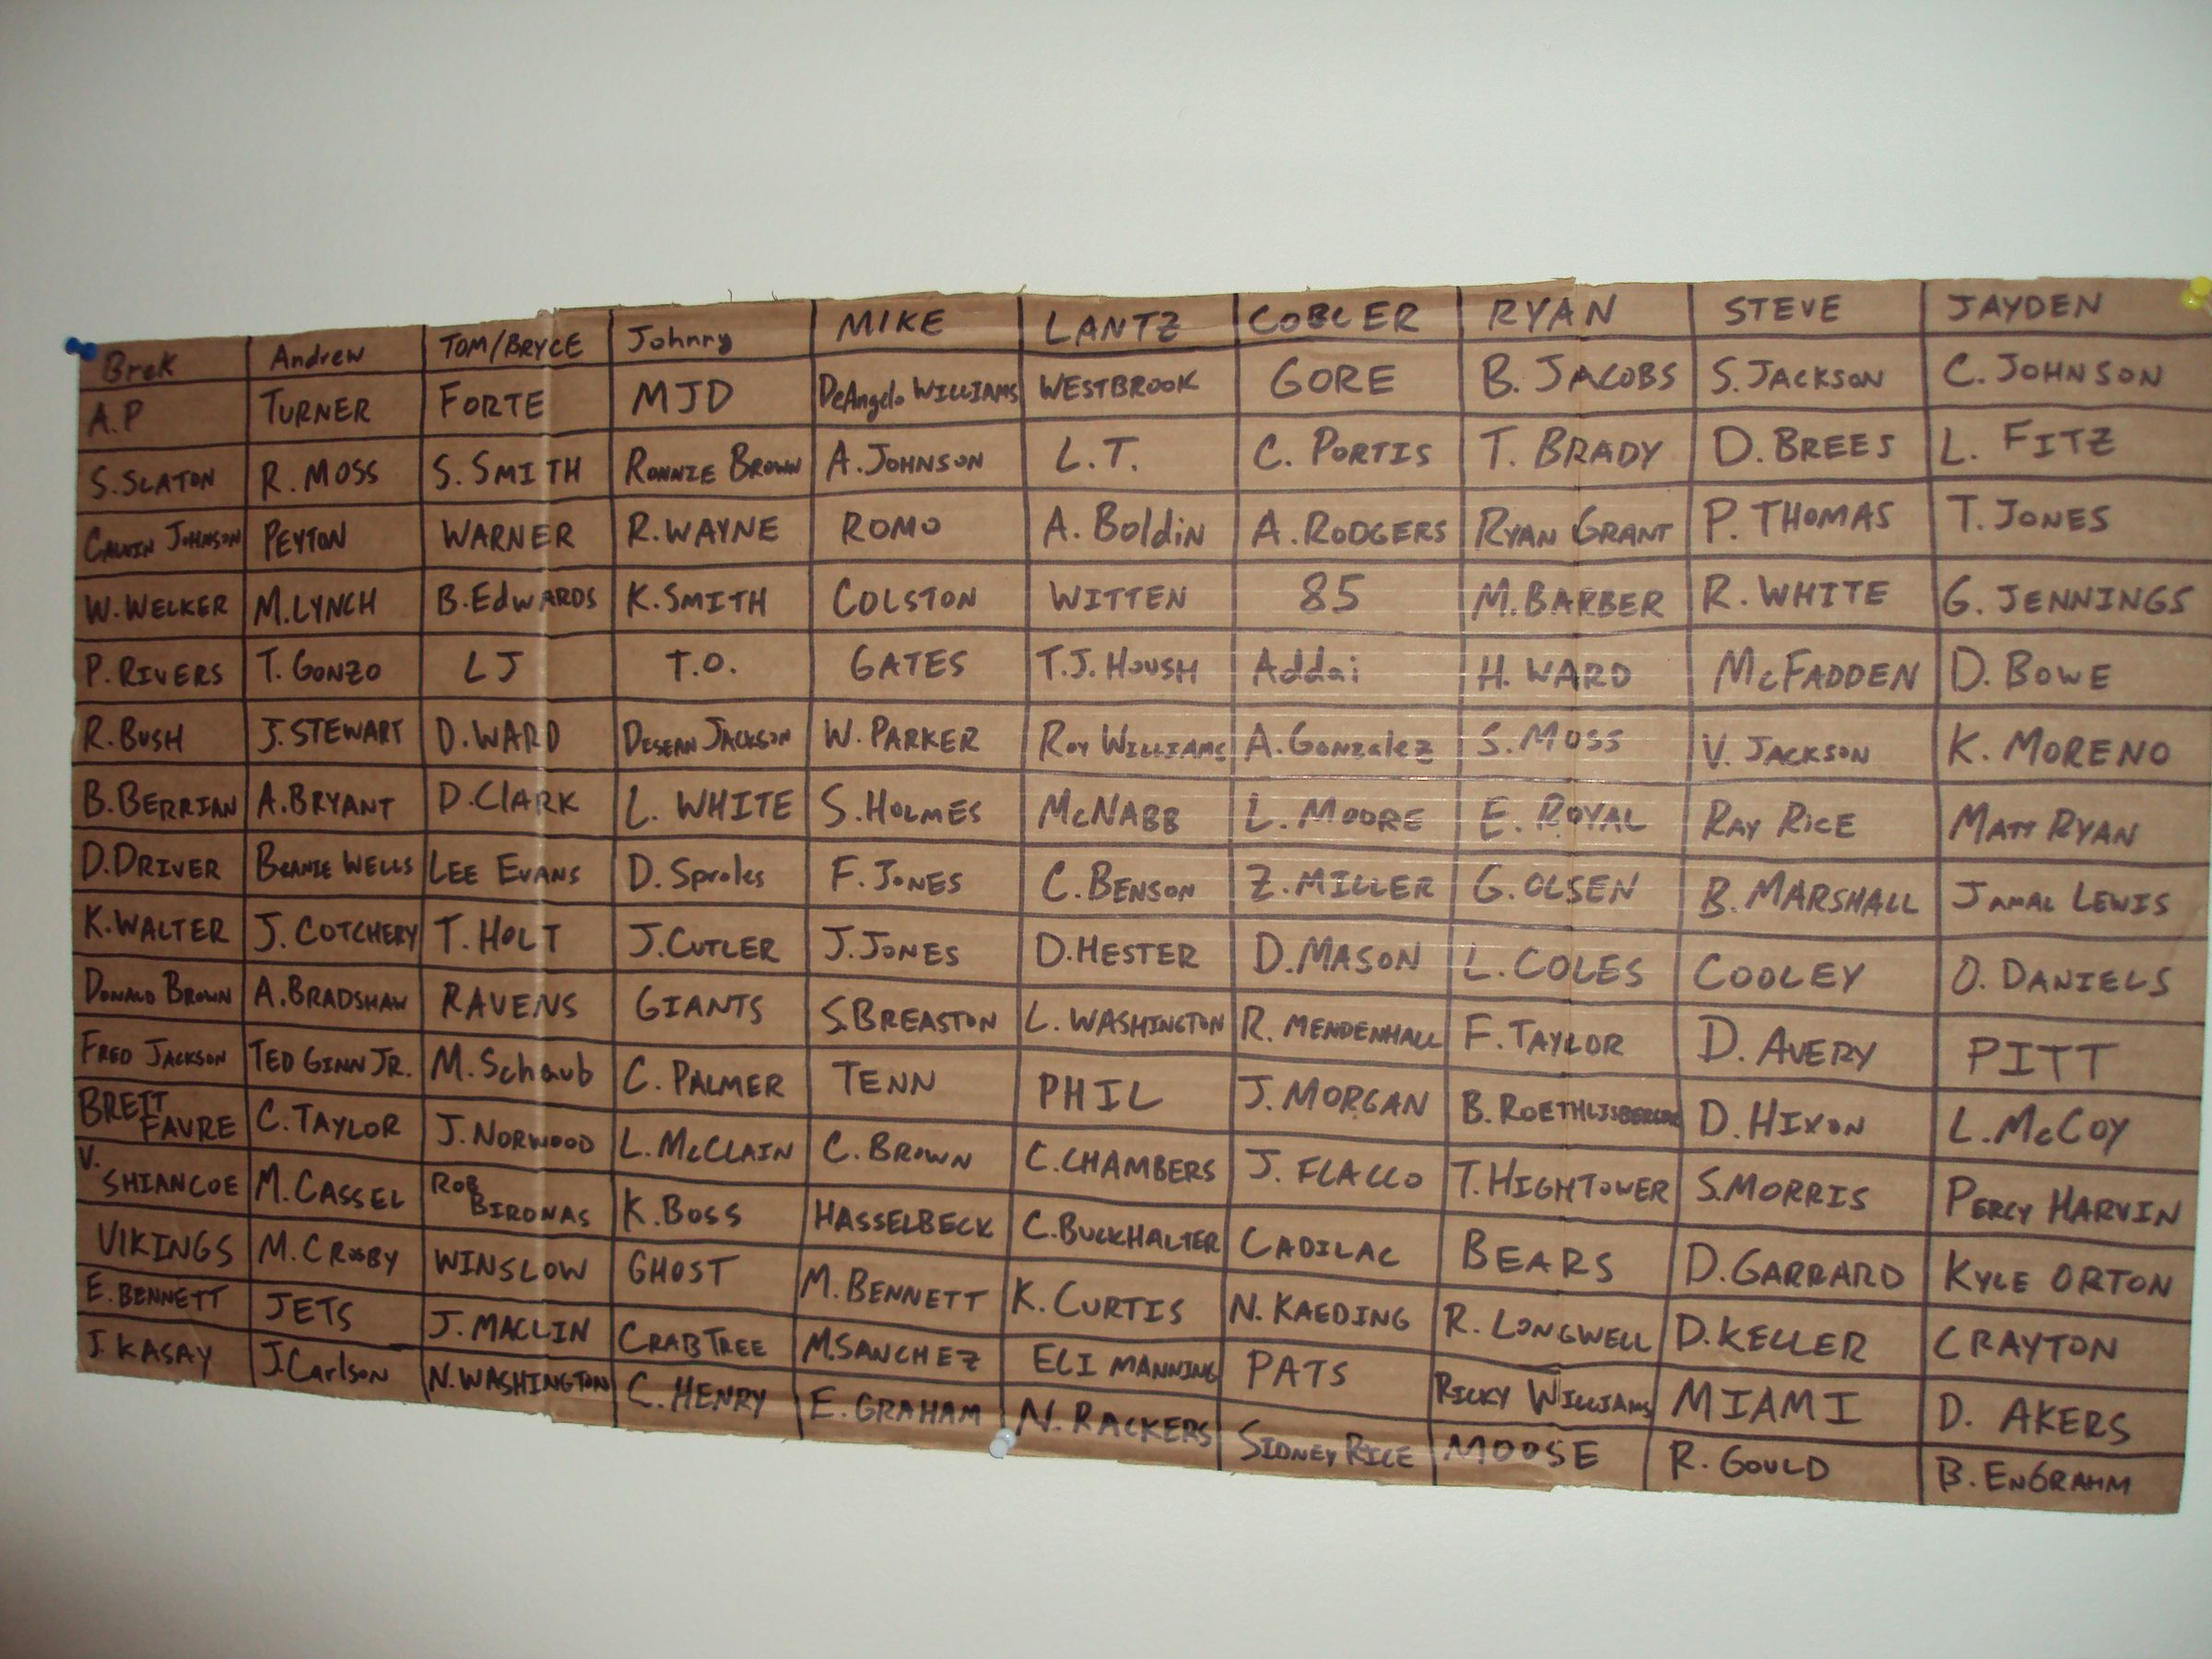 Brek Andrew TOM/BRYCE Johnny MIKE LANTZ COBLER RYAN STEVE JAYDEN
A.P TURNER FORTE MJD DeAngelo WILLIAMS WESTBROOK GORE B. JACOBS S. JACKSON C. JOHNSON
S. SLATON R. MOSS S. SMITH RONNIE BROWN A. JOHNSON L.T. C. PORTIS T. BRADY D. BREES L. FITZ
CALVIN JOHNSON PEYTON WARNER R. WAYNE ROMO A. BOLDIN A. RODGERS RYAN GRANT P. THOMAS T. JONES
W. WELKER M. LYNCH B. EDWARDS K. SMITH COLSTON WITTEN 85 M. BARBER R. WHITE G. JENNINGS
P. RIVERS T. GONZO LJ T.O. GATES T.J. HOUSH Addai H. WARD McFADDEN D. BOWE
R. BUSH J. STEWART D. WARD DESEAN JACKSON W. PARKER ROY WILLIAMS A. Gonzalez S. MOSS V. JACKSON K. MORENO
B. BERRIAN A. BRYANT D. ClARK L. WHITE S. HOLMES McNABB L. MOORE E. ROYAL RAY RICE MATT RYAN
D. DRIVER BEANIE WELLS LEE EVANS D. Sproles F. JONES C. BENSON Z. MILLER G. OLSEN B. MARSHALL JAMAL LEWIS
K. WALTER J. COTCHERY T. HOLT J. CUTLER J. JONES D. HESTER D. MASON L. COLES COOLEY O. DANIELS
DONALD BROWN A. BRADSHAW RAVENS GIANTS S. BREASTON L. WASHINGTON R. MENDENHALL F. TAYLOR D. AVERY PITT
FRED JACKSON TED GINN JR. M. Schaub C. PALMER TENN PHIL J. MORGAN B. ROETHLISBERGER D. HIXON L. McCOY
BRETT FAVRE C. TAYLOR J. NORWOOD L. McCLAIN C. BROWN C. CHAMBERS J. FLACCO T. HIGHTOWER S. MORRIS PERCY HARVIN
V. SHIANCOE M. CASSEL ROB BIRONAS K. BOSS HASSELBECK C. BUCKHALTER CADILAC BEARS D. GARRARD KYLE ORTON
VIKINGS M. CROSBY WINSLOW GHOST M. BENNETT K. CURTIS N. KAEDING R. LONGWELL D. KELLER CRAYTON
E. BENNETT JETS J. MACLIN CRABTREE M. SANCHEZ ELI MANNING PATS RICKY WILLIAMS MIAMI D. AKERS
J. KASAY J. Carlson N. WASHINGTON C. HENRY E. GRAHAM N. RACKERS SIDNEY RICE MOOSE R. GOULD B. ENGRAHM